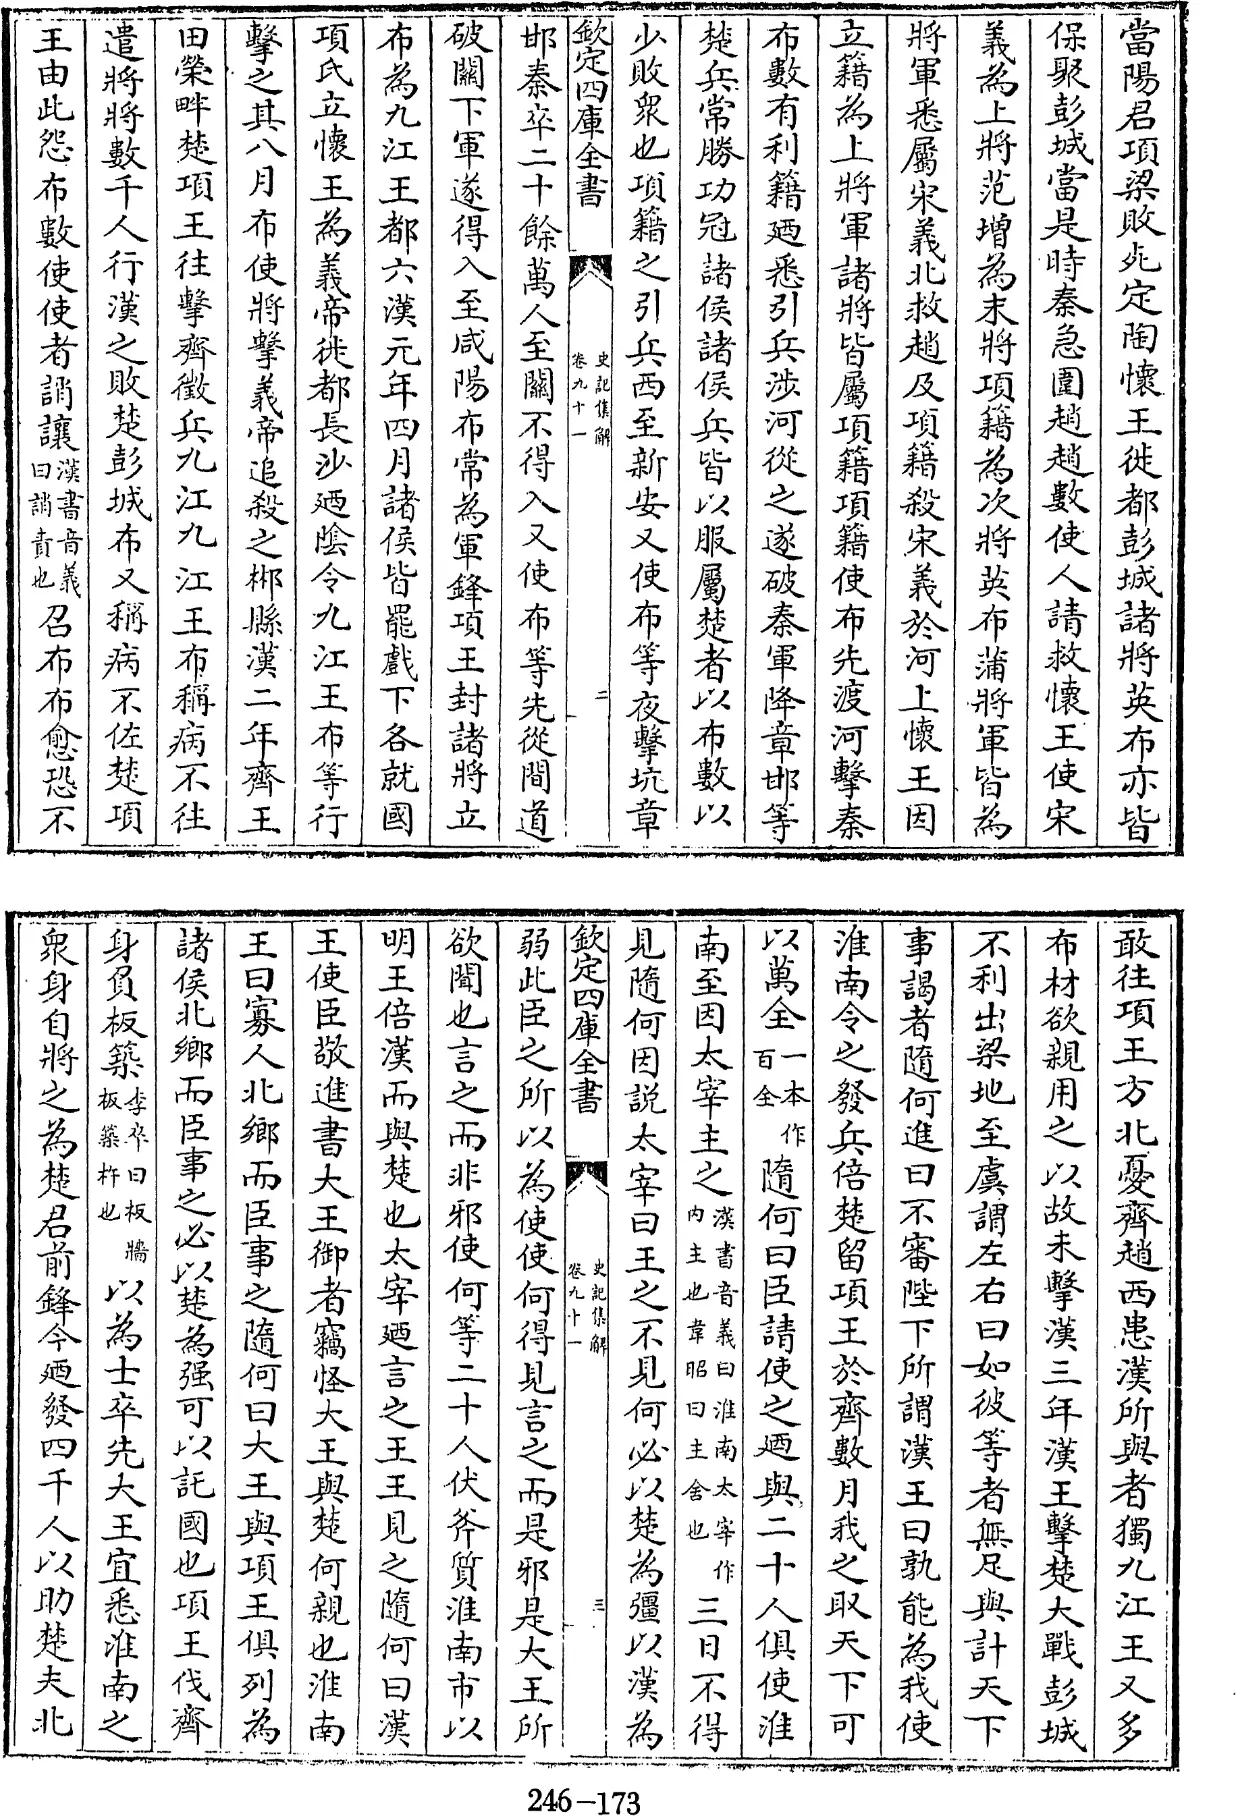 當陽君項梁敗死定陶懷王徙都彭城諸將英布亦皆
保聚彭城當是時秦急圍趙趙數使人請救懷王使宋
義為上將范増為末將項籍為次將英布蒲將軍皆為
將軍悉屬宋義北救趙及項籍殺宋義於河上懷王因
立籍為上將軍諸將皆屬項籍項籍使布先渡河擊秦
布數有利籍廼悉引兵涉河從之遂破秦軍降章邯等
楚兵常勝功冠諸侯諸侯兵皆以服屬楚者以布數以
少敗衆也項籍之引兵西至新安又使布等夜擊坑章
欽定四庫全書
史記集解
卷九十一
二
邯秦卒二十餘萬人至關不得入又使布等先從間道
破關下軍遂得入至咸陽布常為軍鋒項王封諸將立
布為九江王都六漢元年四月諸侯皆罷戲下各就國
項氏立懷王為義帝徙都長沙廼陰令九江王布等行
擊之其八月布使將擊義帝追殺之郴縣漢二年齊王
田榮畔楚項王往擊齊徵兵九江九江王布稱病不往
遣將將數千人行漢之敗楚彭城布又稱病不佐楚項
王由此怨布數使使者誚讓漢書音義曰誚責也召布布愈恐不
敢往項王方北憂齊趙西患漢所與者獨九江王又多
布材欲親用之以故未擊漢三年漢王擊楚大戰彭城
不利出梁地至虞謂左右曰如彼等者無足與計天下
事謁者隨何進曰不審陛下所謂漢王曰孰能為我使
淮南令之發兵倍楚留項王於齊數月我之取天下可
以萬全一本作百全隨何曰臣請使之廼與二十人俱使淮
南至因太宰主之漢書音義曰淮南太宰作内主也韋昭曰主舍也三日不得
見隨何因説太宰曰王之不見何必以楚為彊以漢為
欽定四庫全書
史記集解
卷九十一
三
弱此臣之所以為使使何得見言之而是邪是大王所
欲聞也言之而非邪使何等二十人伏斧質淮南市以
明王倍漢而與楚也太宰廼言之王王見之隨何曰漢
王使臣敬進書大王御者竊怪大王與楚何親也淮南
王曰寡人北鄉而臣事之隨何曰大王與項王俱列為
諸侯北鄉而臣事之必以楚為强可以託國也項王伐齊
身負板築李奇曰板牆板築杵也以為士卒先大王宜悉淮南之
衆身自將之為楚君前鋒今廼發四千人以助楚夫北
246-173